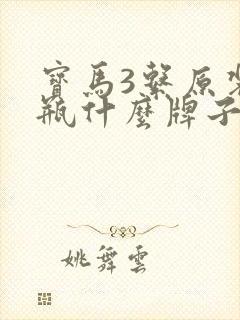 寶馬3繫原裝
瓶什麼牌子
姚舞雲